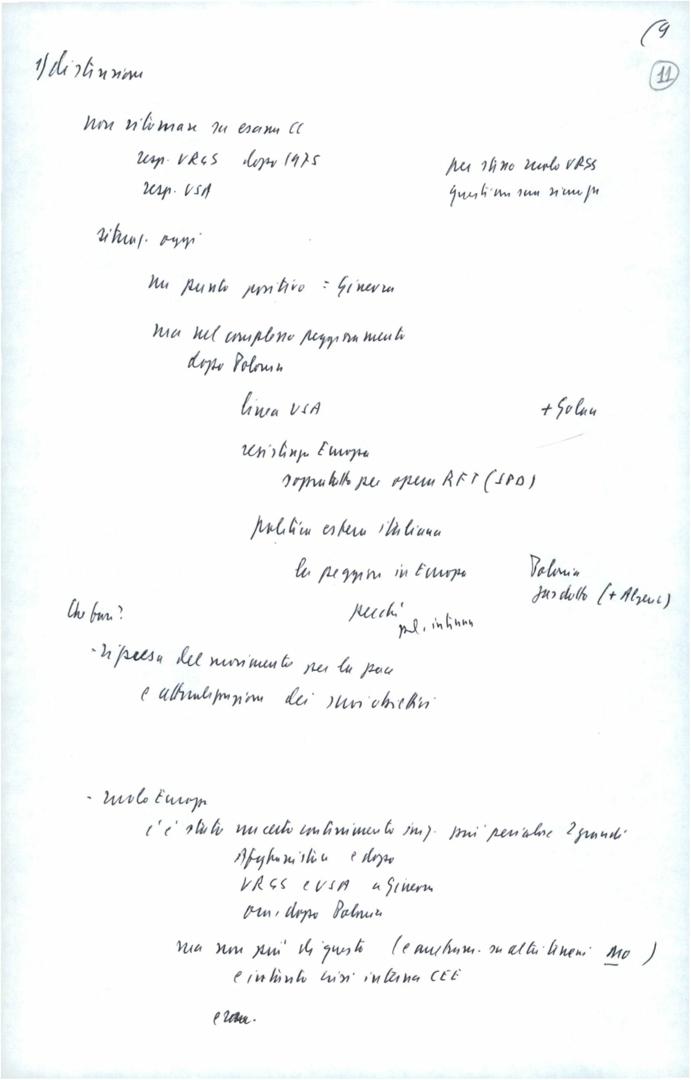 (9
11
1) distensione
non ritornare su esame CC
resp. URSS dopo 1975
resp. USA
per stesso ruolo URSS
questioni
situaz. oggi
un punto positivo = Ginevra
ma nel complesso peggioramento
dopo Polonia
linea USA
+ Golan
resistenza Europa
soprattutto per opera RFT (SPD)
politica estera italiana
la peggiore in Europa
Polonia
gasdotto (+ Algeria)
Che fare?
perché
pol. interna
- ripresa del movimento per la pace
e attualizzazione dei suoi obiettivi
- ruolo Europa
c'è stato un certo contenimento più 2 grandi
Afghanistan e dopo
URSS e USA a Ginevra
dopo Polonia
ma non più di questo (e su altri terreni MO)
e intanto crisi interna CEE